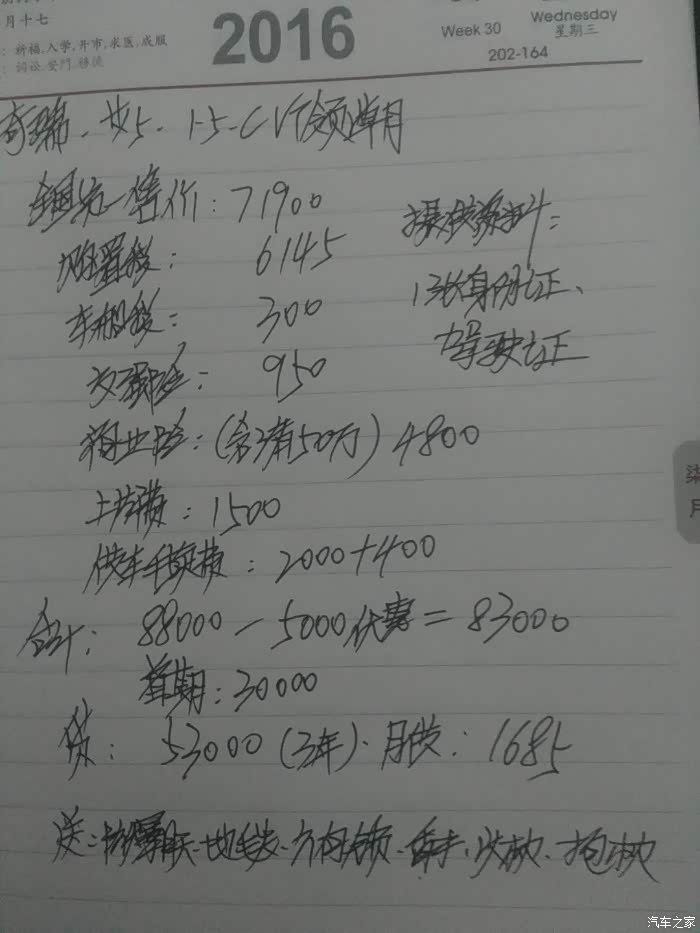 月十七
：祈福,入学,开市,求医,成服
：词讼,安門,移徙
2016
Week 30
Wednesday
星期三
202-164
奇瑞·艾5·1·5·CVT领潮月
全国统一售价：71900
购置税：6145
车船税：300
交强险：950
商业险：(含三者50万) 4800
上牌费：1500
供车手续费：2000+400
提供资料：
13长身份证、
驾驶证
合计：88000－5000优惠＝83000
首期：30000
贷：53000 (3年)·月供：1685
送：防爆膜·地毯·方向锁·香水·头枕·抱枕
柒
月
汽车之家